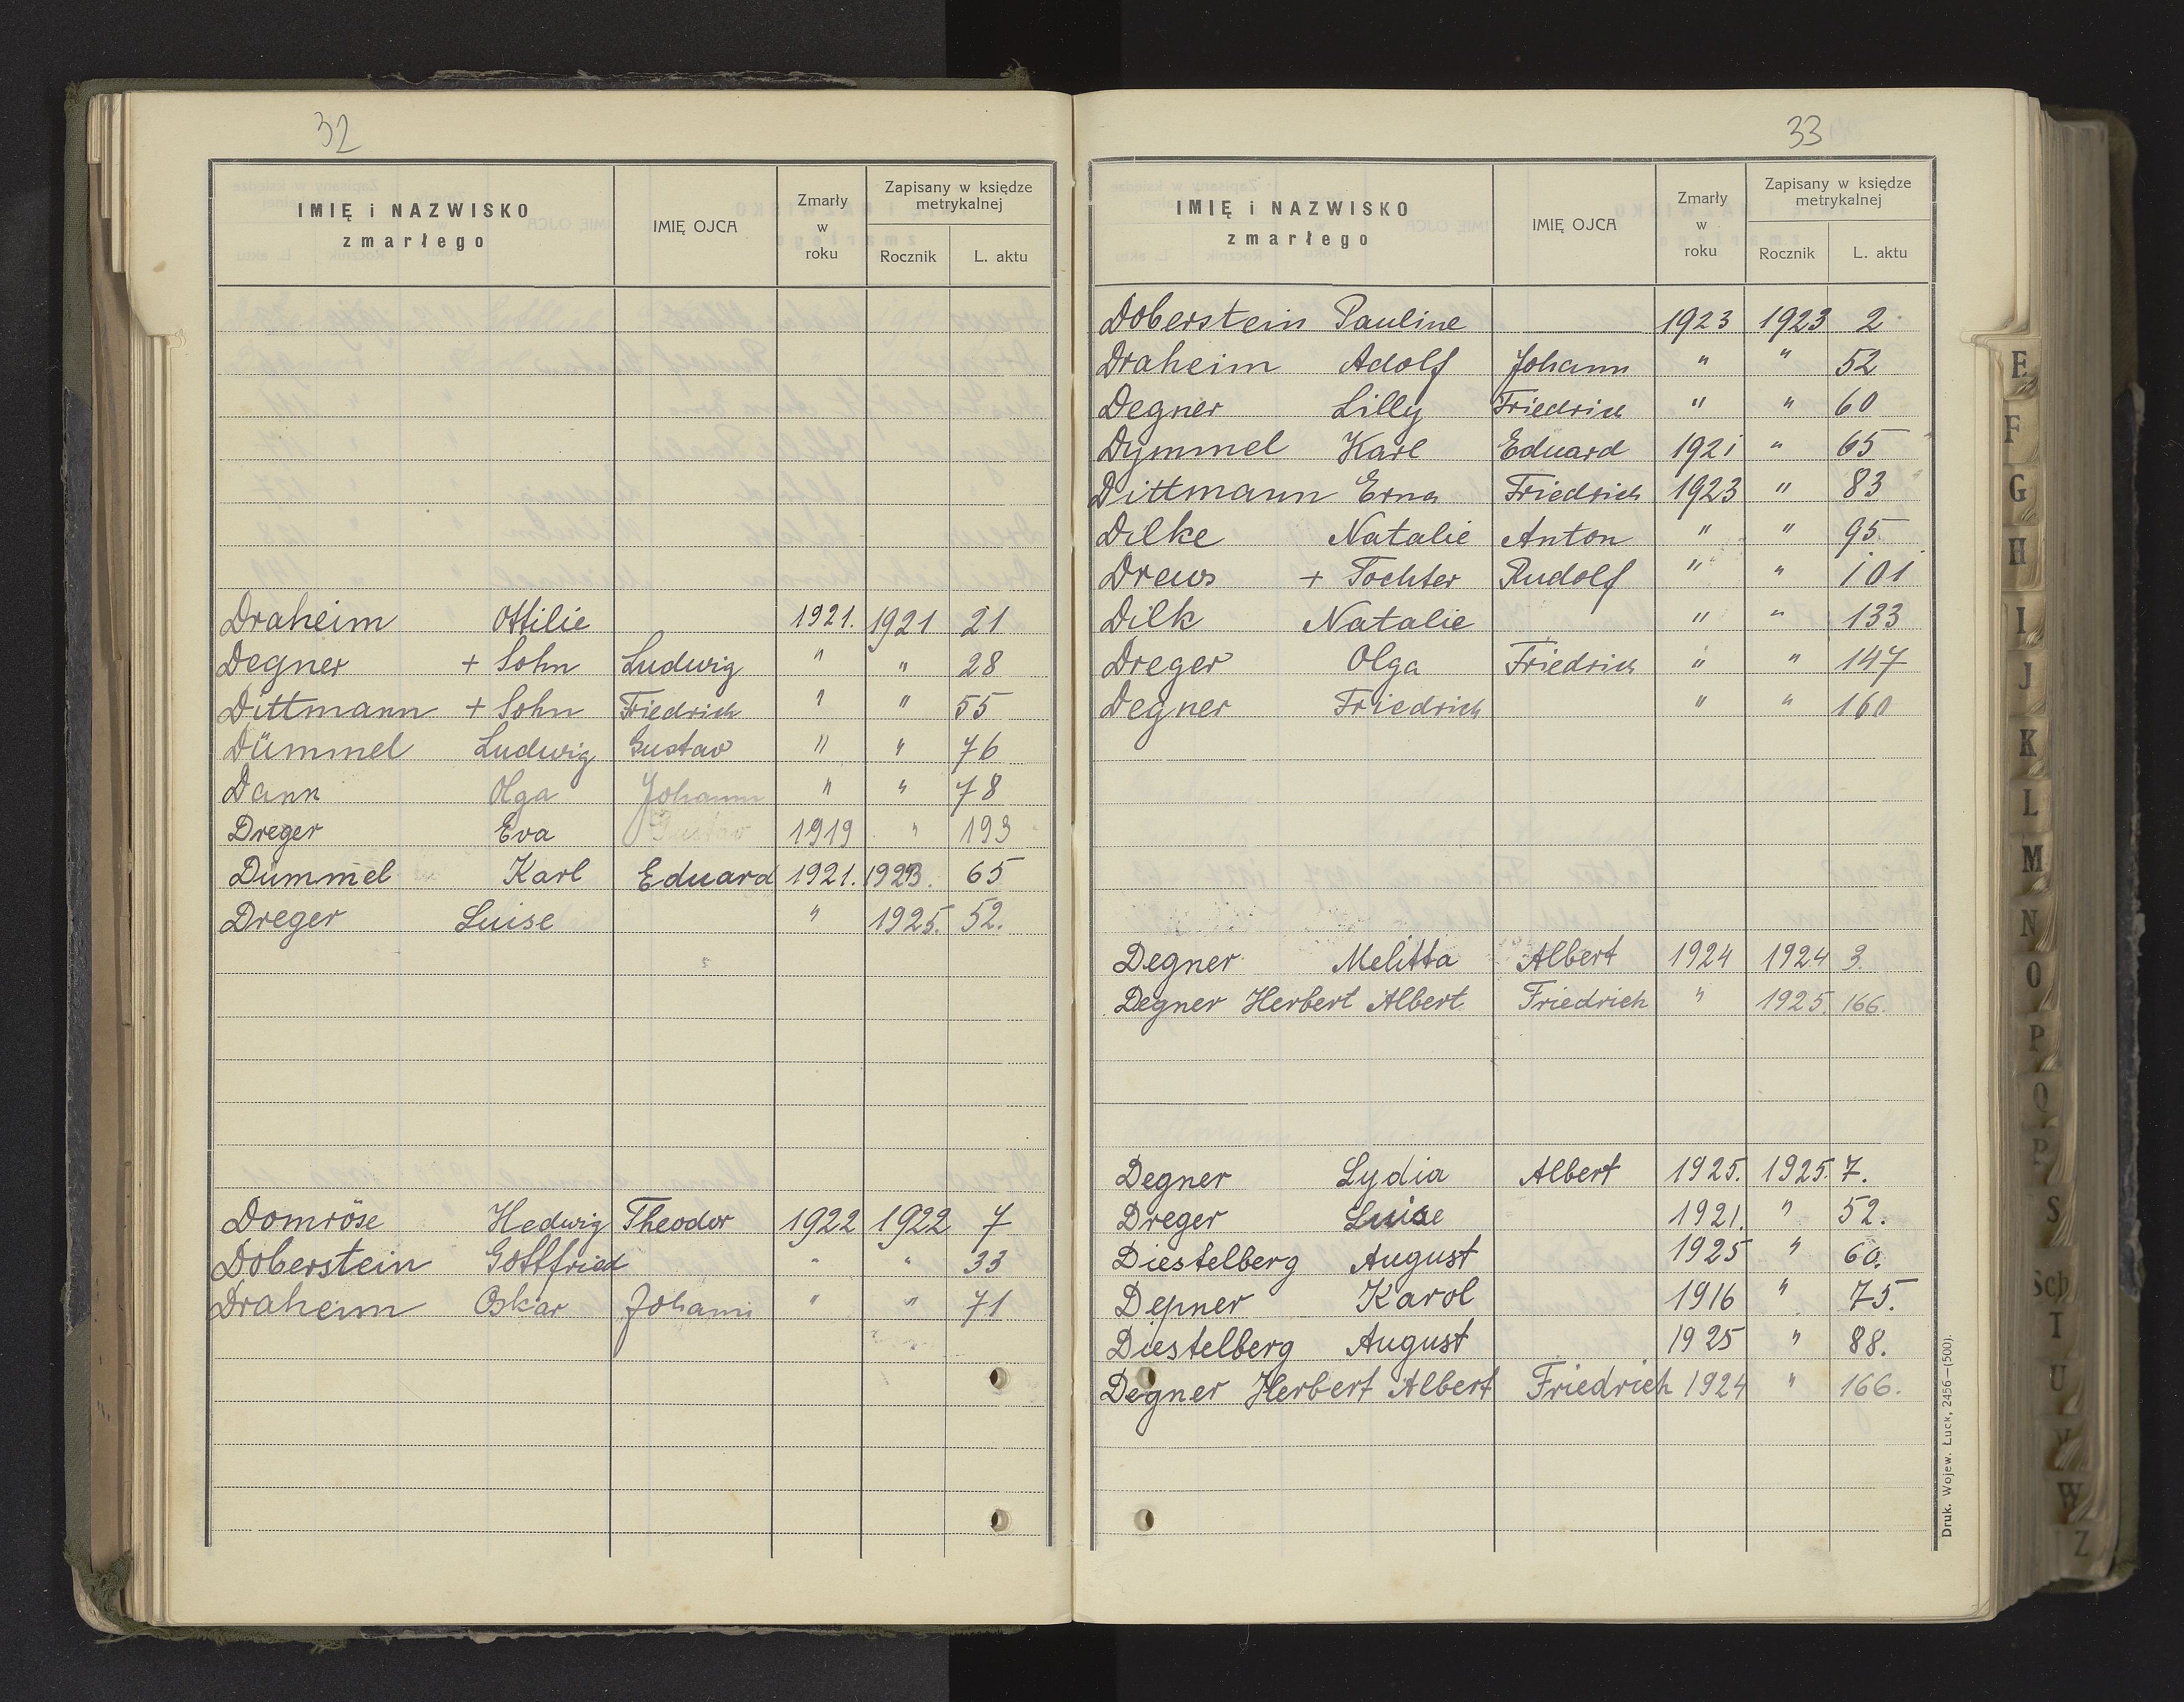 32
IMIĘ i NAZWISKO zmarłego IMIĘ OJCA Zmarły w roku Zapisany w księdze metrykalnej Rocznik L. aktu
Draheim Ottilie 1921. 1921 21
Degner + Sohn Ludwig " " 28
Dittmann + Sohn Friedrich " " 55
Dümmel Ludwig Gustav " " 76
Dann Olga Johann " " 78
Dreger Eva Gustav 1919 " 193
Dümmel Karl Eduard 1921. 1923. 65
Dreger Luise " 1925. 52.
Domröse Hedwig Theodor 1922 1922 7
Doberstein Gottfried " " 33
Draheim Oskar Johann " " 71
33
IMIĘ i NAZWISKO zmarłego IMIĘ OJCA Zmarły w roku Zapisany w księdze metrykalnej Rocznik L. aktu
Doberstein Pauline 1923 1923 2
Draheim Adolf Johann " " 52
Degner Lilly Friedrich " " 60
Dymmel Karl Eduard 1921 " 65
Dittmann Erna Friedrich 1923 " 83
Dilke Natalie Anton " " 95
Drews + Tochter Rudolf " " 101
Dilk Natalie " " 133
Dreger Olga Friedrich " " 147
Degner Friedrich " " 160
Degner Melitta Albert 1924 1924 3.
Degner Herbert Albert Friedrich " 1925. 166.
Degner Lydia Albert 1925. 1925. 7.
Dreger Luise 1921. " 52.
Diestelberg August 1925 " 60.
Depner Karol 1916 " 75.
Diestelberg August 1925 " 88.
Degner Herbert Albert Friedrich 1924 " 166.
Druk. Wojew. Łuck, 2456—(500).
E
F
G
H
I
J
K
L
M
N
O
P
Q
R
S
Sch
T
U
V
W
Z